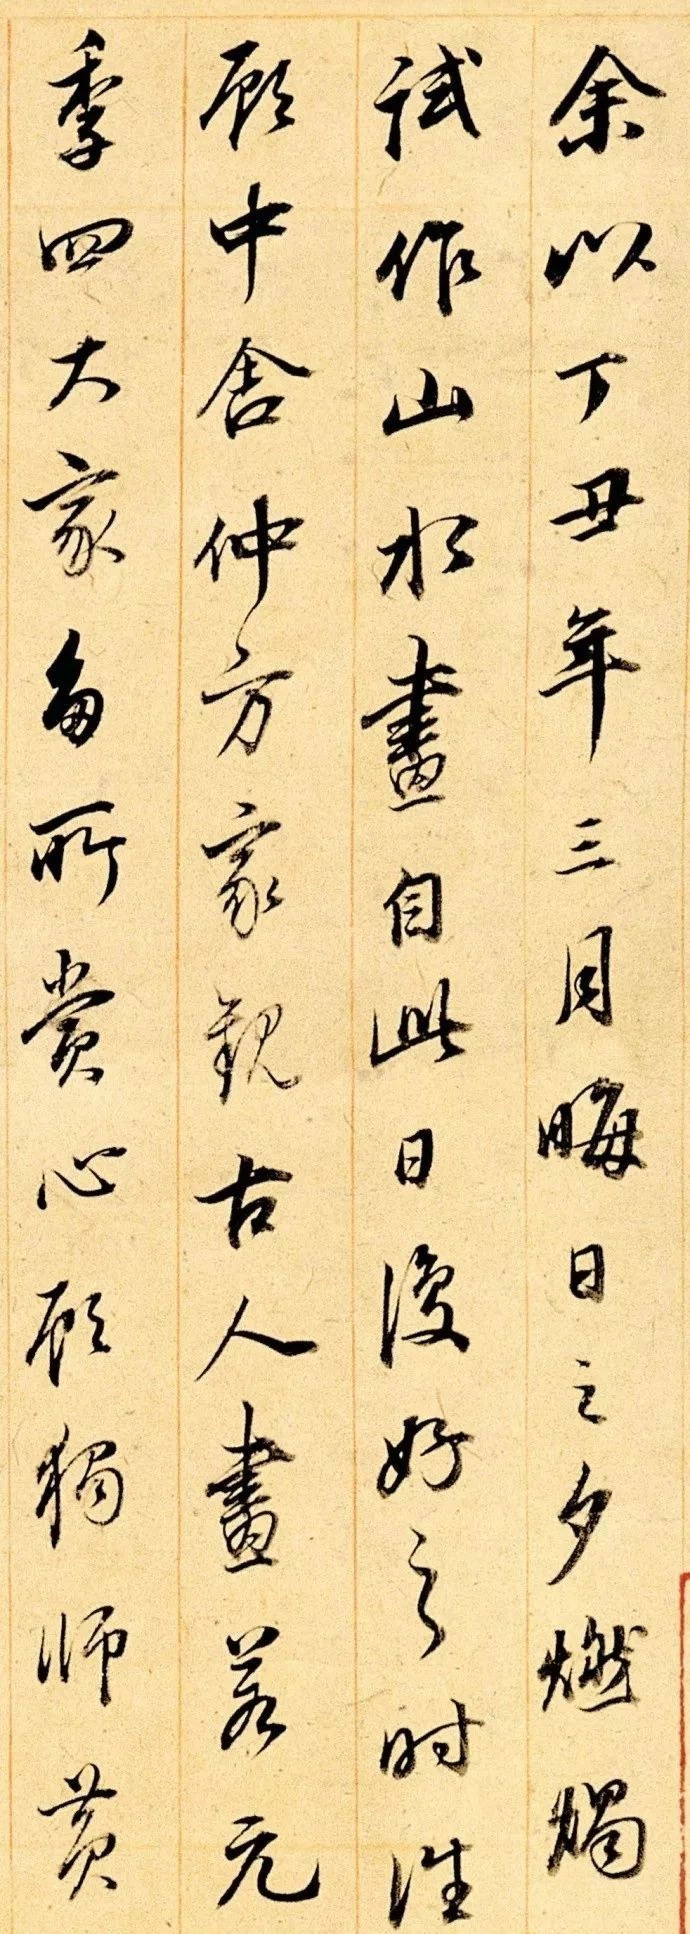 余以丁丑年三月晦日之夕燃燭
試作山水畫自此日復好之时往
顾中舍仲方家觀古人畫若元
季四大家多所賞心顾獨師黄